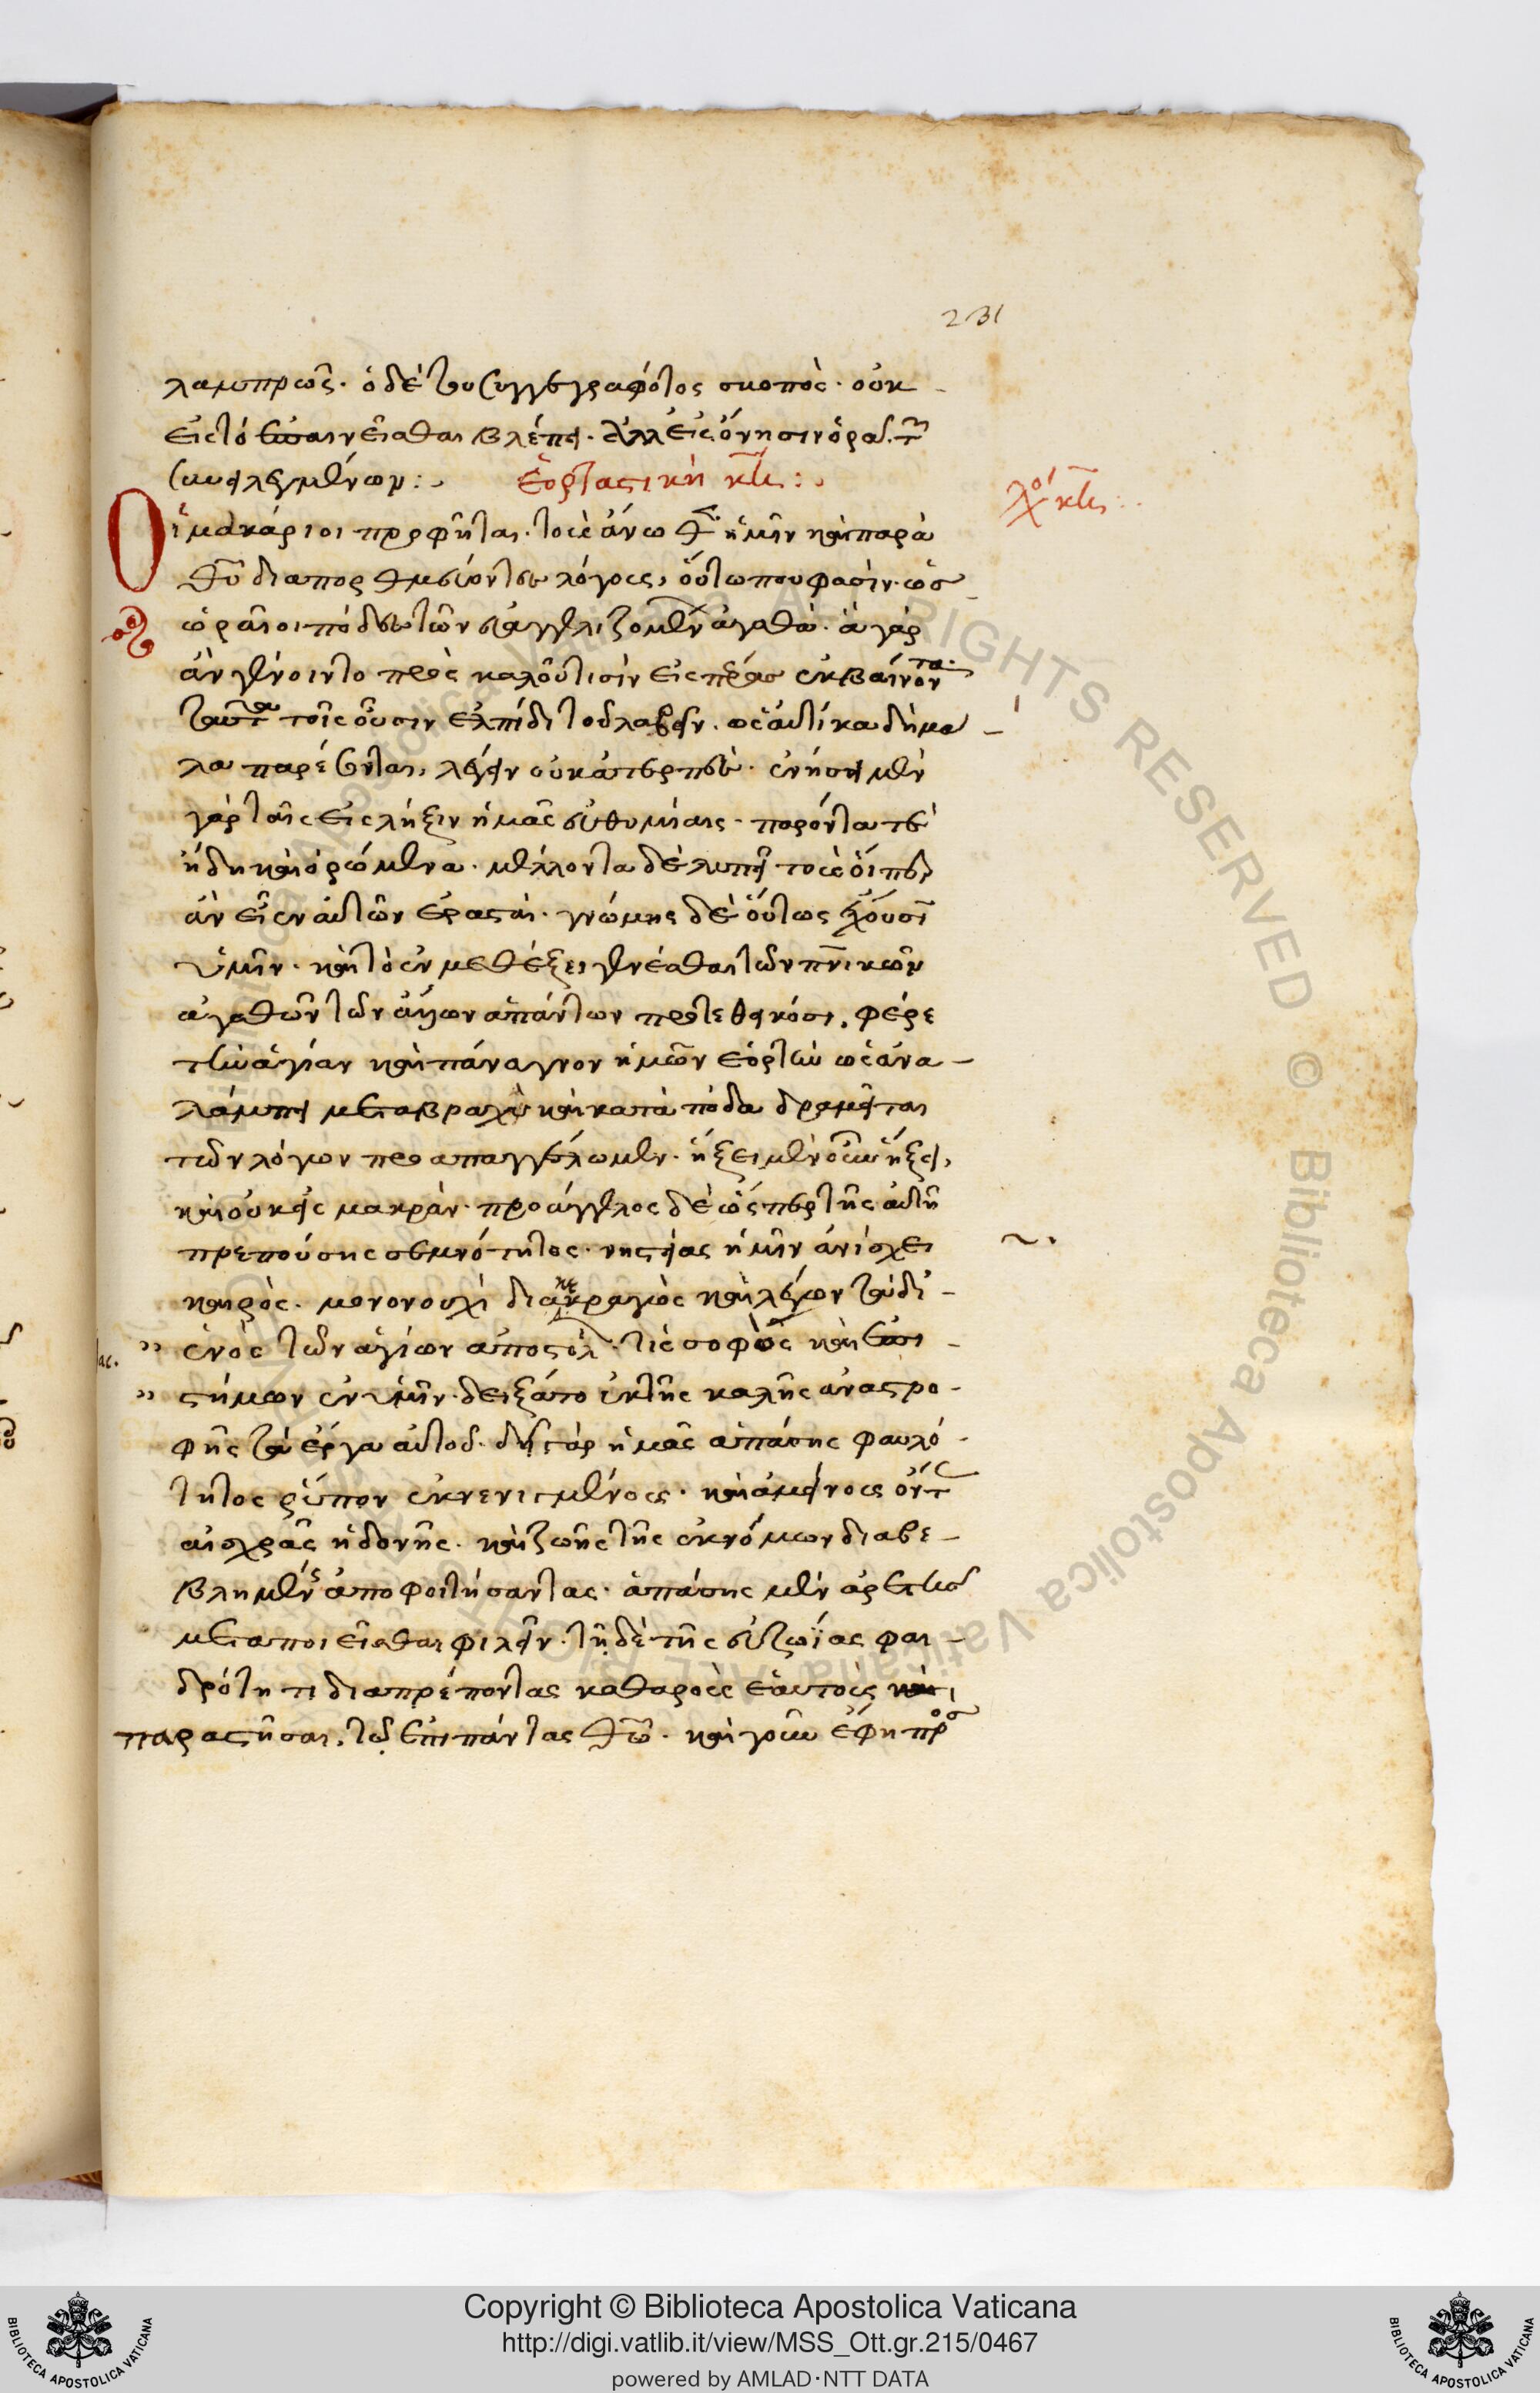 231
λαμπρῶς. ὁ δὲ τοῦ συγγεγραφότος σκοπὸς. οὐκ
εἰς τὸ ἐπαινεῖσθαι βλέπει. ἀλλ εἰς ὄνησιν ὁρᾶ. τῶν
συνειλεγμένων :
Ἑορταστικὴ κε :
λό κε :
Οἱ μακάριοι προφῆται. τοὺς ἄνωθεν ἡμῖν καὶ παρὰ
θυ διαπορθμεύοντες λόγους, οὕτω που φασὶν. ὡς
ὡραῖοι πόδες τῶν εὐαγγελιζομένων ἀγαθά. ἃ γὰρ
ἂν γένοιντο πρὸς καλοῦ τισὶν εἰς πέρας ἐκβαίνοντα.
ταῦτα τοῖς οὖσιν ἐλπίδι τοῦ λαβεῖν. ὡς αὐτίκα δὴ μά
λα παρέσται, λέγειν οὐκ ἀτερπὲς. ἐνήσει μὲν
γὰρ ταῖς εἰς λῆξιν ἡμᾶς εὐθυμίαις. παρόντα τὲ
ἤδη καὶ ὁρώμενα. μέλλοντα δὲ λυπεῖ τοὺς οἵπερ
ἂν εἶεν αὐτῶν ἐρασταὶ. γνώμης δὲ οὕτως ἔχουσιν
ὑμῖν. καὶ τὸ ἐν μεθέξει γενέσθαι τῶν πνικῶν
ἀγαθῶν τῶν ἄλλων ἁπάντων προτεθεικόσι. φέρε
τὴν ἁγίαν καὶ πάναγνον ἡμῶν ἑορτὴν ὡς ἀνα
λάμπει μετὰ βραχὺ καὶ κατὰ πόδα δραμεῖται
τῶν λόγων προαπαγγέλωμεν. ἥξει μὲν οὖν ἥξει,
καὶ οὐκ εἰς μακρὰν. προάγγελος δὲ ὥσπερ τῆς αὐτῇ
πρεπούσης σεμνότητος. νηστείας ἡμῖν ἀνίσχει
καιρὸς. μονονουχὶ διακεκραγὼς καὶ λέγων τὰ δι
ἑνὸς τῶν ἁγίων ἀποστόλων. τίς σοφὸς καὶ ἐπι
στήμων ἐν ὑμῖν. δειξάτω ἐκ τῆς καλῆς ἀναστρο
φῆς τὰ ἔργα αὐτοῦ. δεῖ γὰρ ἡμᾶς ἁπάσης φαυλό
τητος ῥύπον ἐκνενιμμένους. καὶ ἀμείνους ὄντας
αἰσχρᾶς ἡδονῆς. καὶ ζωῆς τῆς ἐκνόμων διαβε
βλημένης ἀποφοιτήσαντας. ἁπάσης μὲν ἀρετῆς
μεταποιεῖσθαι φιλεῖν. τῇ δὲ τῆς εὐζωΐας φαι
δρότητι διαπρέποντας καθαροὺς ἑαυτοὺς
παραστῆσαι. τῷ ἐπὶ πάντας θω. καὶ γοῦν ἔφη πρὸς
Copyright © Biblioteca Apostolica Vaticana
http://digi.vatlib.it/view/MSS_Ott.gr.215/0467
powered by AMLAD·NTT DATA